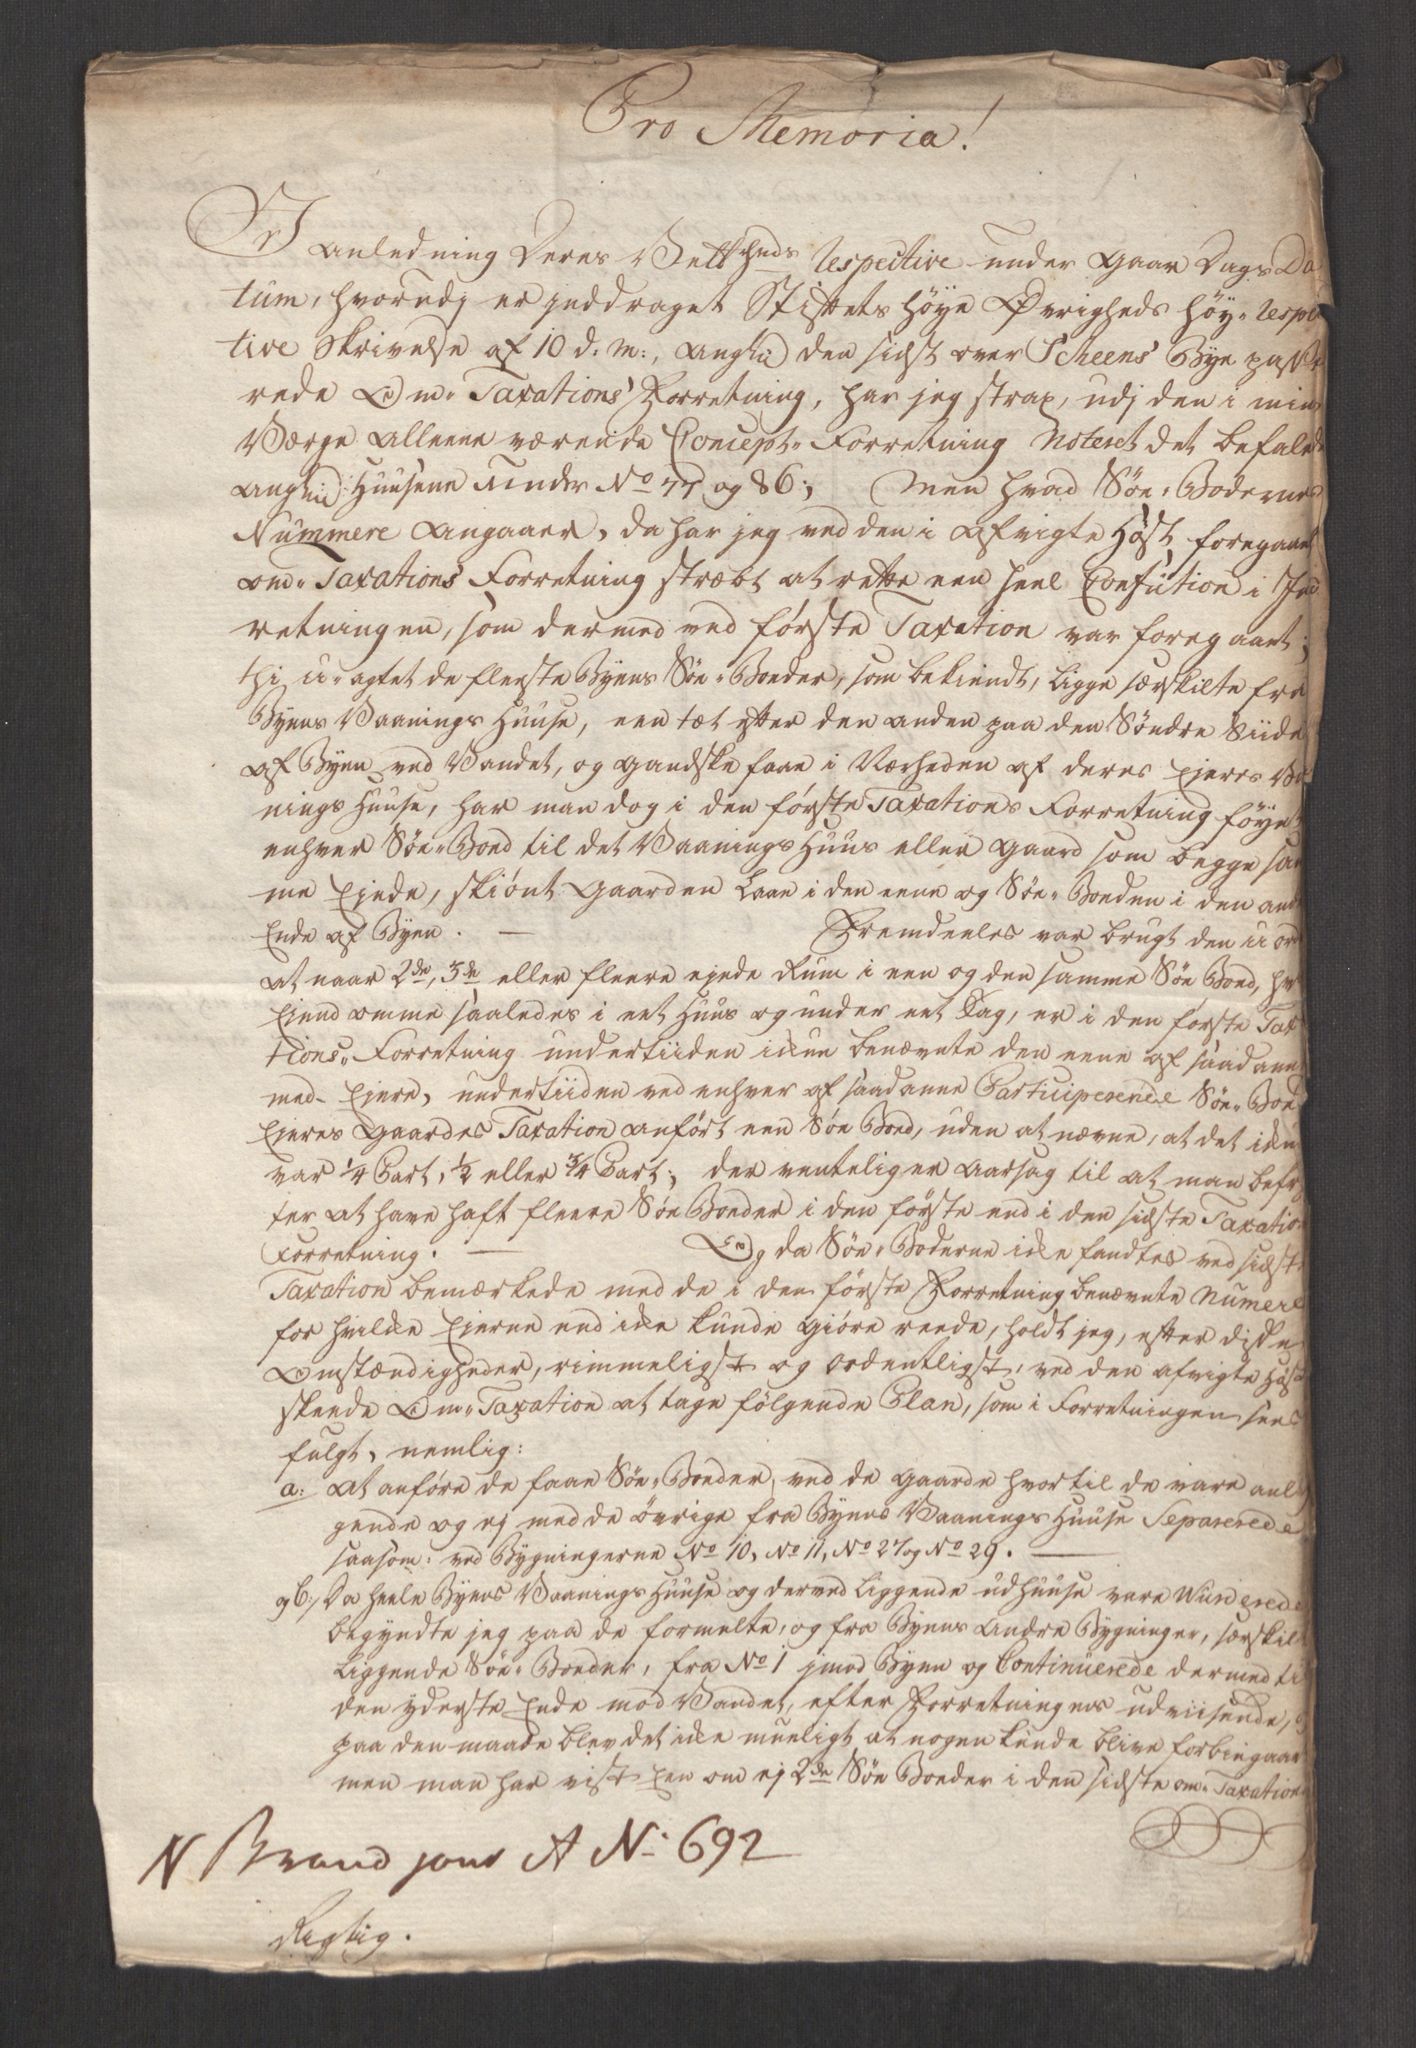 Pro Memoria!
I Anledning Deres Vellbhds respective under Gaar Dags Da
tum, hvorudj er jnddraget Stiftets høye Øvrigheds høy-respec
tive Skrivelse af 10 d: m:, Angln den sidst over Scheens Bye passe
rede Om-Taxations Forretning, har jeg strax, udj den i min
Værge alleene værende Concept-Forretning Noteret det befalede
Anglnd: Huusene under No 77 og 86; Men hvad Søe-Bodernes
Nummere Angaaer, da har jeg ved den i afvigte Høst foregaaede
om-Taxations Forretning stræbt at rette een heel Confution i Ind
retningen, som dermed ved første Taxation var foregaaet;
thi u-agtet de fleeste Byens Søe-Boeder, som bekiendt, ligge særskilte fra
Byens Vaanings Huuse, een tæt efter den anden paa den Søndre Siide
af Byen ved Vandet, og gandske faae i Nærheden af deres Ejeres Vaa
nings Huuse, har man dog i den første Taxations Forretning føyet
enhver Søe-Boed til det Vaanings Huus eller Gaard som begge sam
me Ejede, skiønt Gaarden laae i den eene og Søe-Boeden i den anden
Ende af Byen. — Fremdeeles var brugt den uord
at naar 2de, 3de eller fleere ejede Rum i een og den samme Søe Boed, hvis
Ejendomme saaledes i eet Huus og under eet Tag, er i den første Taxa
tions-Forretning undertiiden ikun benævnte den eene af saadanne
med-Ejere, undertiiden ved enhver af saadanne Participerende Søe-Boed
Ejeres Gaardes Taxation anført een Søe Boed, uden at nævne, at det ikun
var 1/4 Part, 1/2 eller 3/4 Part; der venteligen er Aarsag til at man befryg
ter at have haft fleere Søe Boeder i den første end i den sidste Taxations
Forretning. — Og da Søe-Boderne ikke fandtes ved sidste
Taxation bemærkede med de i den første Forretning benævnte Numere
for hvilke Ejerne end ikke kunde giøre reede, holdt jeg, efter disse
Omstændigheder, rimmeligst og ordentligst, ved den afvigte Høst
skeede Om-Taxation at tage følgende Plan, som i Forretningen sees
fulgt, nemlig:
a: At anføre de faae Søe-Boeder, ved de Gaarde hvortil de vare anlig
gende og ej med de øvrige fra Byens Vaanings Huuse Separerede
saasom: ved Bygningerne No 10, No 11, No 27 og No 29. —
og b:, Da heele Byens Vaanings Huuse og derved liggende udhuuse vare Wurderede
begyndte jeg paa de formelte, og fra Byens Andre Bygninger, særskilt
liggende Søe-Boeder, fra No 1 jmod Byen og Continuerede dermed til
den yderste Ende mod Vandet, efter Forretningens udviisende, og
paa den maade blev det ikke mueligt at nogen kunde blive forbiegaaet
men man har vist Een om ej 2de Søe Boeder i den sidste om-Taxation
N Brand jour A No 692
Rigtig.